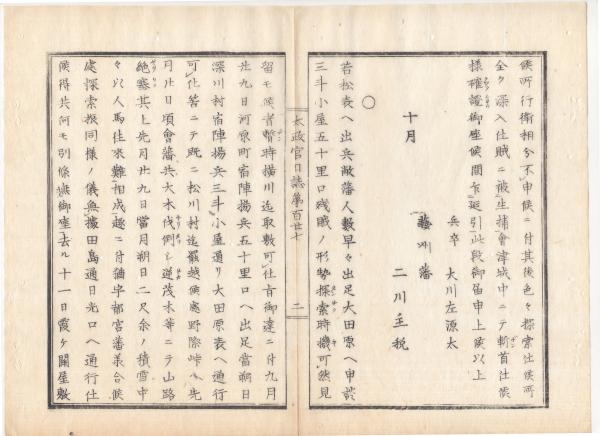 候所行衛相分不申候ニ付其後色々探索仕候所
全ク深入仕賊ニ被生捕會津城中ニテ斬首仕候
様確證御座候間乍延引此段御届申上候以上
兵卒 大川左源太
十月 藝州藩 二川主税
○
若松表ヘ出兵敝藩人數早々出足大田原ヘ申談
三斗小屋五十里口殘賊ノ形勢探索時機可然見
太政官日誌第百廿七 二
留モ候者暫時横川迄取敷可仕旨御達ニ付九月
廿九日河原町宿陣揚兵五十里口ヘ出足當朔日
深川村宿陣揚兵三斗小屋通リ大田原ヘ通行
可仕筈ニテ既ニ松川村迄罷越候處野際峠ヘ先
月廿日頃會藩共大木伐倒シ道茂木等ニテ山路
絶塞其上先月廿九日當月朔日二尺余ノ積雪中
々以人馬往來難相成趣ニ付猶宇都宮藩義合候
處探索振同様ノ儀無據田島通日光口ヘ通行仕
候得共何モ別條無御座去ル十一日霞ケ關屋敷